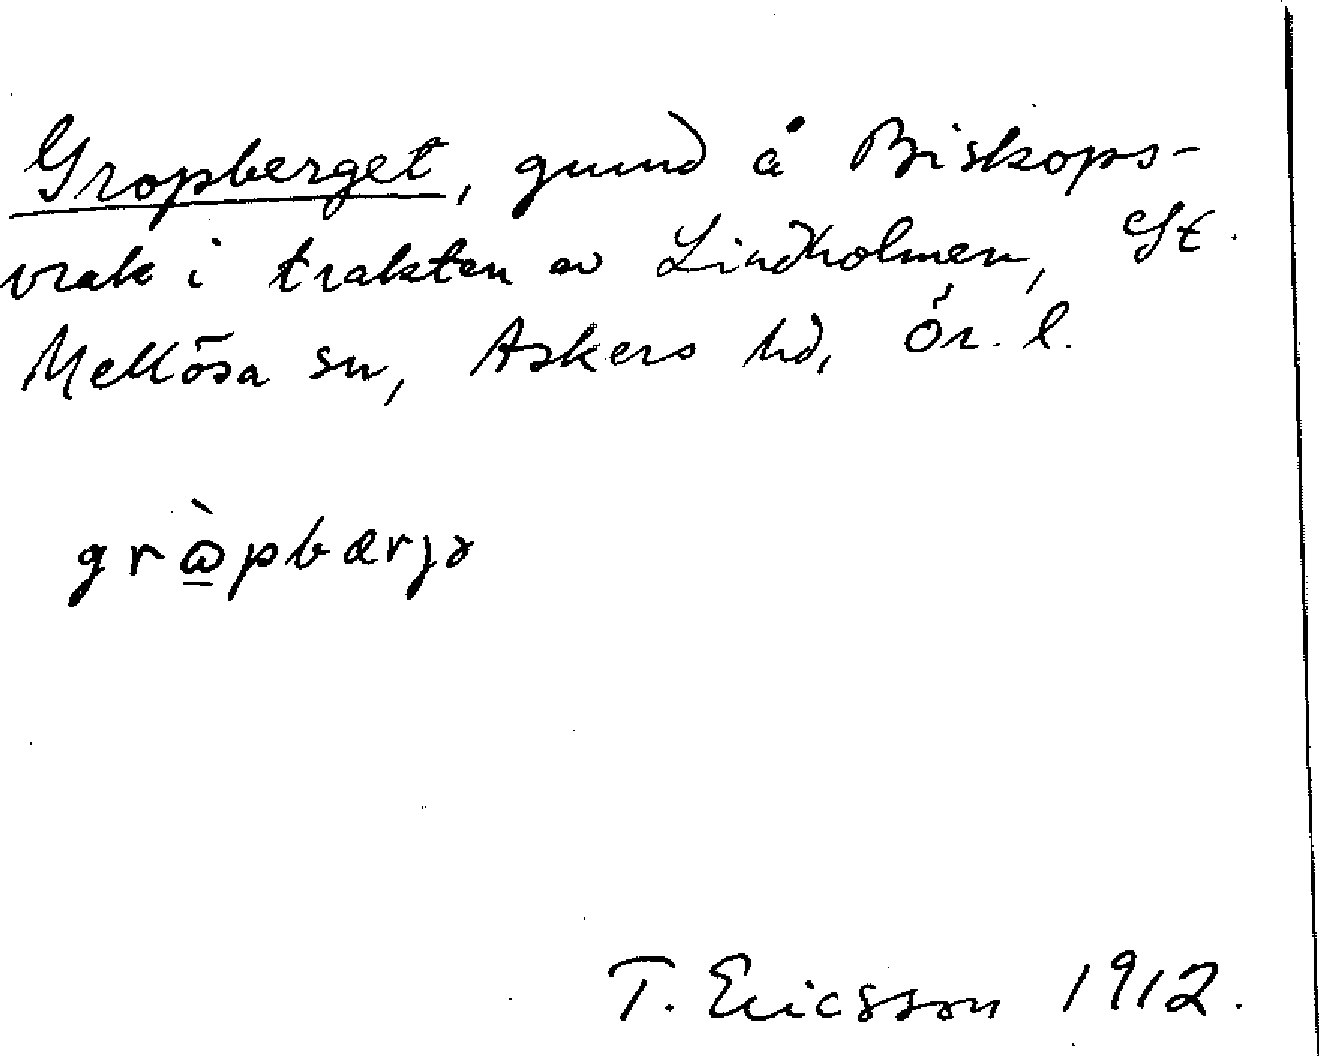 Gropberget, grund å Biskops-
vrak i trakten av Lindholmen, St.
Mellösa sn, Askers hd, Ör. l.
T. Ericsson 1912.